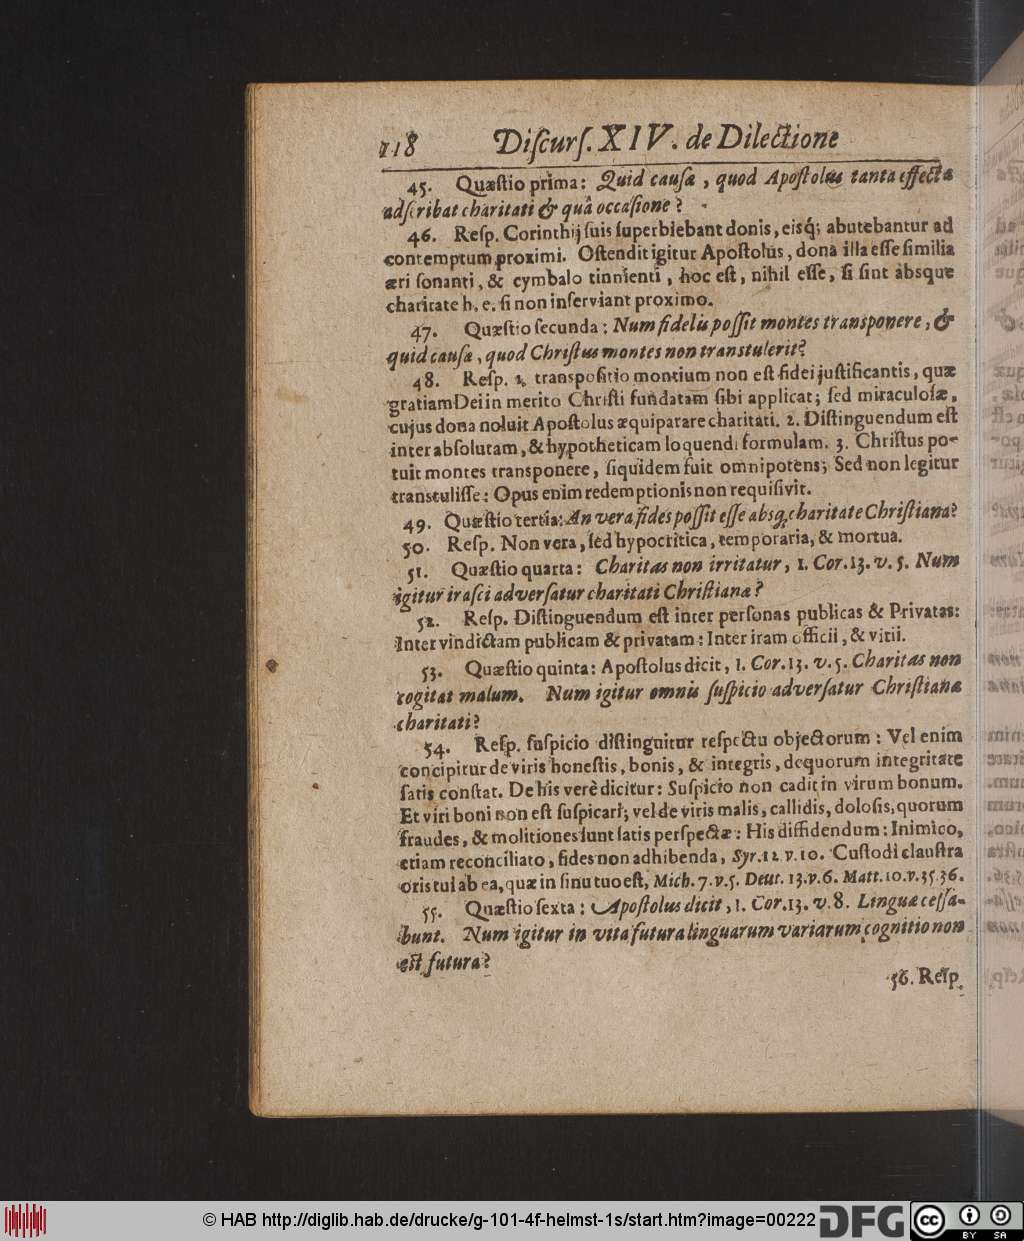 118 Diſcurſ. XIV. de Dilectione
45. Quæſtio prima: Quid cauſæ, quod Apoſtolus tanta effecta
adſcribat charitati & quâ occaſione?
46. Reſp. Corinthij ſuis ſuperbiebant donis, eisq́; abutebantur ad
contemptum proximi. Oſtendit igitur Apoſtolus, dona illa eſſe ſimilia
æri ſonanti, & cymbalo tinnienti, hoc eſt, nihil eſſe, ſi ſint absque
charitate h. e. ſi non inſerviant proximo.
47. Quæſtio ſecunda: Num fidelis poſſit montes transponere, &
quid cauſæ, quod Chriſtus montes non transtulerit?
48. Reſp. 1. transpoſitio montium non eſt fidei juſtificantis, quæ
gratiam Dei in merito Chriſti fundatam ſibi applicat; ſed miraculoſæ,
cujus dona noluit Apoſtolus æquiparare charitati. 2. Diſtinguendum eſt
inter abſolutam, & hypotheticam loquendi formulam. 3. Chriſtus po-
tuit montes transponere, ſiquidem fuit omnipotens; Sed non legitur
transtuliſſe: Opus enim redemptionis non requiſivit.
49. Quæſtio tertia: An vera fides poſſit eſſe absq; charitate Chriſtiana?
50. Reſp. Non vera, ſed hypocritica, temporaria, & mortua.
51. Quæſtio quarta: Charitas non irritatur, 1. Cor. 13. v. 5. Num
igitur iraſci adverſatur charitati Chriſtianæ?
52. Reſp. Diſtinguendum eſt inter perſonas publicas & Privatas:
Inter vindictam publicam & privatam: Inter iram officii, & vitii.
53. Quæſtio quinta: Apoſtolus dicit, 1. Cor. 13. v. 5. Charitas non
cogitat malum. Num igitur omnis ſuſpicio adverſatur Chriſtianæ
charitati?
54. Reſp. ſuſpicio diſtinguitur reſpectu objectorum: Vel enim
concipitur de viris honeſtis, bonis, & integris, de quorum integritate
ſatis conſtat. De his verè dicitur: Suſpicio non cadit in virum bonum.
Et viri boni non eſt ſuſpicari; vel de viris malis, callidis, doloſis, quorum
fraudes, & molitiones ſunt ſatis perſpectæ: His diffidendum: Inimico,
etiam reconciliato, fides non adhibenda, Syr. 12 v. 10. Cuſtodi clauſtra
oris tui ab ea, quæ in ſinu tuo eſt, Mich. 7. v. 5. Deut. 13. v. 6. Matt. 10. v. 35. 36.
55. Quæſtio ſexta: Apoſtolus dicit, 1. Cor. 13. v. 8. Linguæ ceſſa-
bunt. Num igitur in vita futura linguarum variarum cognitio non
eſt futura?
56. Reſp.
© HAB http://diglib.hab.de/drucke/g-101-4f-helmst-1s/start.htm?image=00222
DFG
cc BY SA